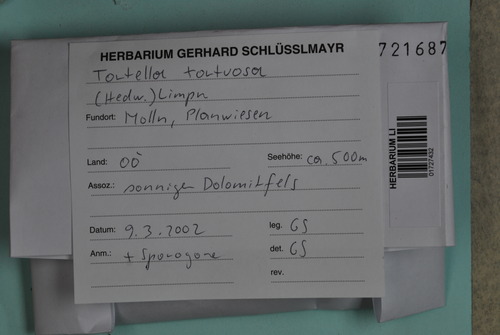 HERBARIUM GERHARD SCHLÜSSLMAYR
721687
Tortella tortuosa
(Hedw.) Limpr
Fundort: Molln, Planwiesen
Land: OÖ
Seehöhe: ca. 500m
Assoz.: sonniger Dolomitfels
Datum: 9.3.2002
leg. GS
Anm.: + Sporogone
det. GS
rev.
HERBARIUM LI
01727432